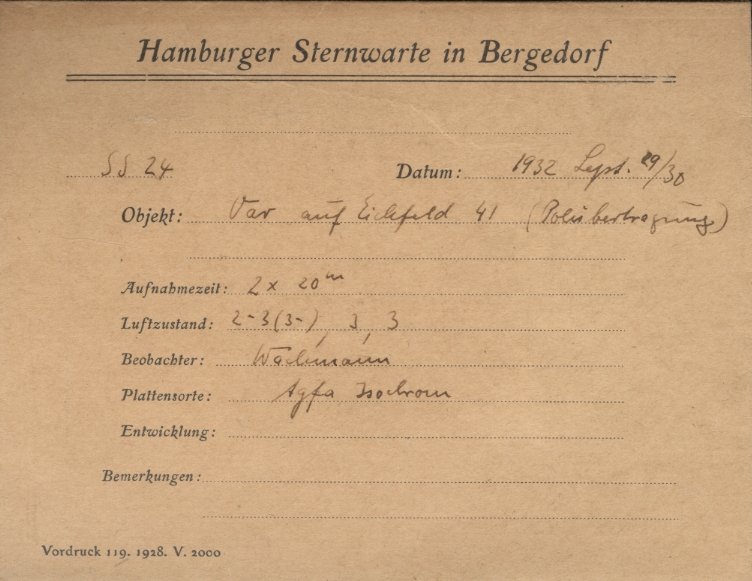 Hamburger Sternwarte in Bergedorf
SS 24 Datum: 1932 Sept. 29/30
Objekt: Var auf Eichfeld 41 (Polübertragung)
Aufnahmezeit: 2 x 20ᵐ
Luftzustand: 2-3(3-), 3, 3
Beobachter: Wachmann
Plattensorte: Agfa Isochrom
Entwicklung:
Bemerkungen:
Vordruck 119. 1928. V. 2000